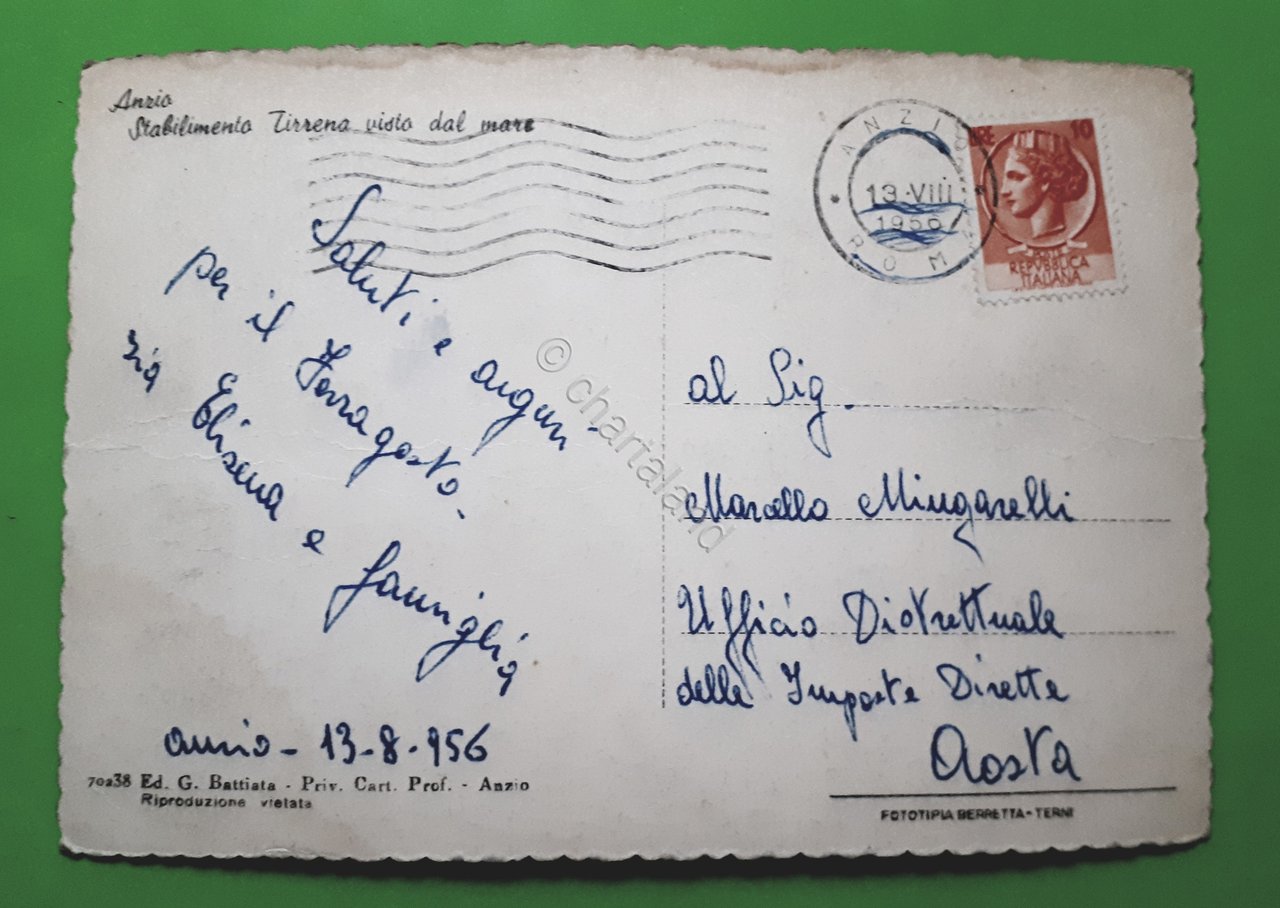 Anzio
Stabilimento Tirrena visto dal mare
ANZIO
13·VIII
1956
ROMA
LIRE 10
REPUBBLICA
ITALIANA
Saluti e auguri
per il Ferragosto.
zia Elisena e famiglia
anzio - 13-8-956
70238 Ed. G. Battiata - Priv. Cart. Prof. - Anzio
Riproduzione vietata
al Sig.
Marcello Mingarelli
Ufficio Distrettuale
delle Imposte Dirette
Aosta
FOTOTIPIA BERRETTA-TERNI
© chartaland